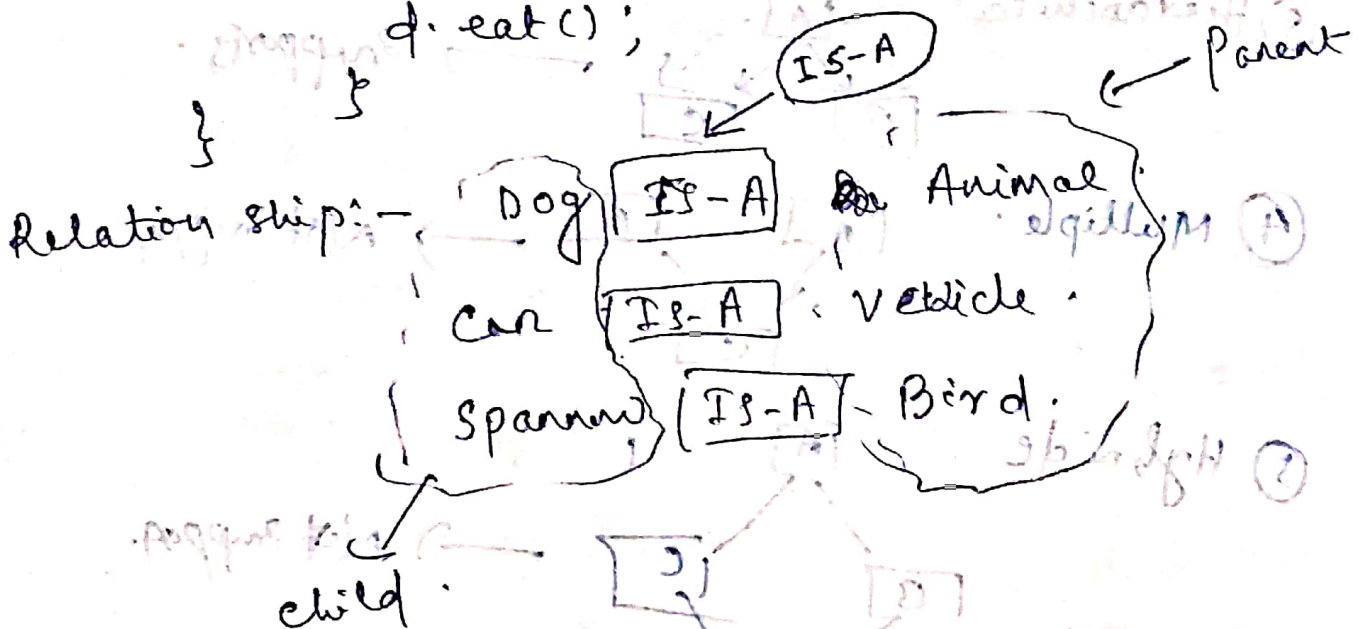 d. eat();
}
}
IS-A
Parent
Relation ship:- Dog IS-A Animal
Car IS-A Vehicle.
Sparrow IS-A Bird.
child.